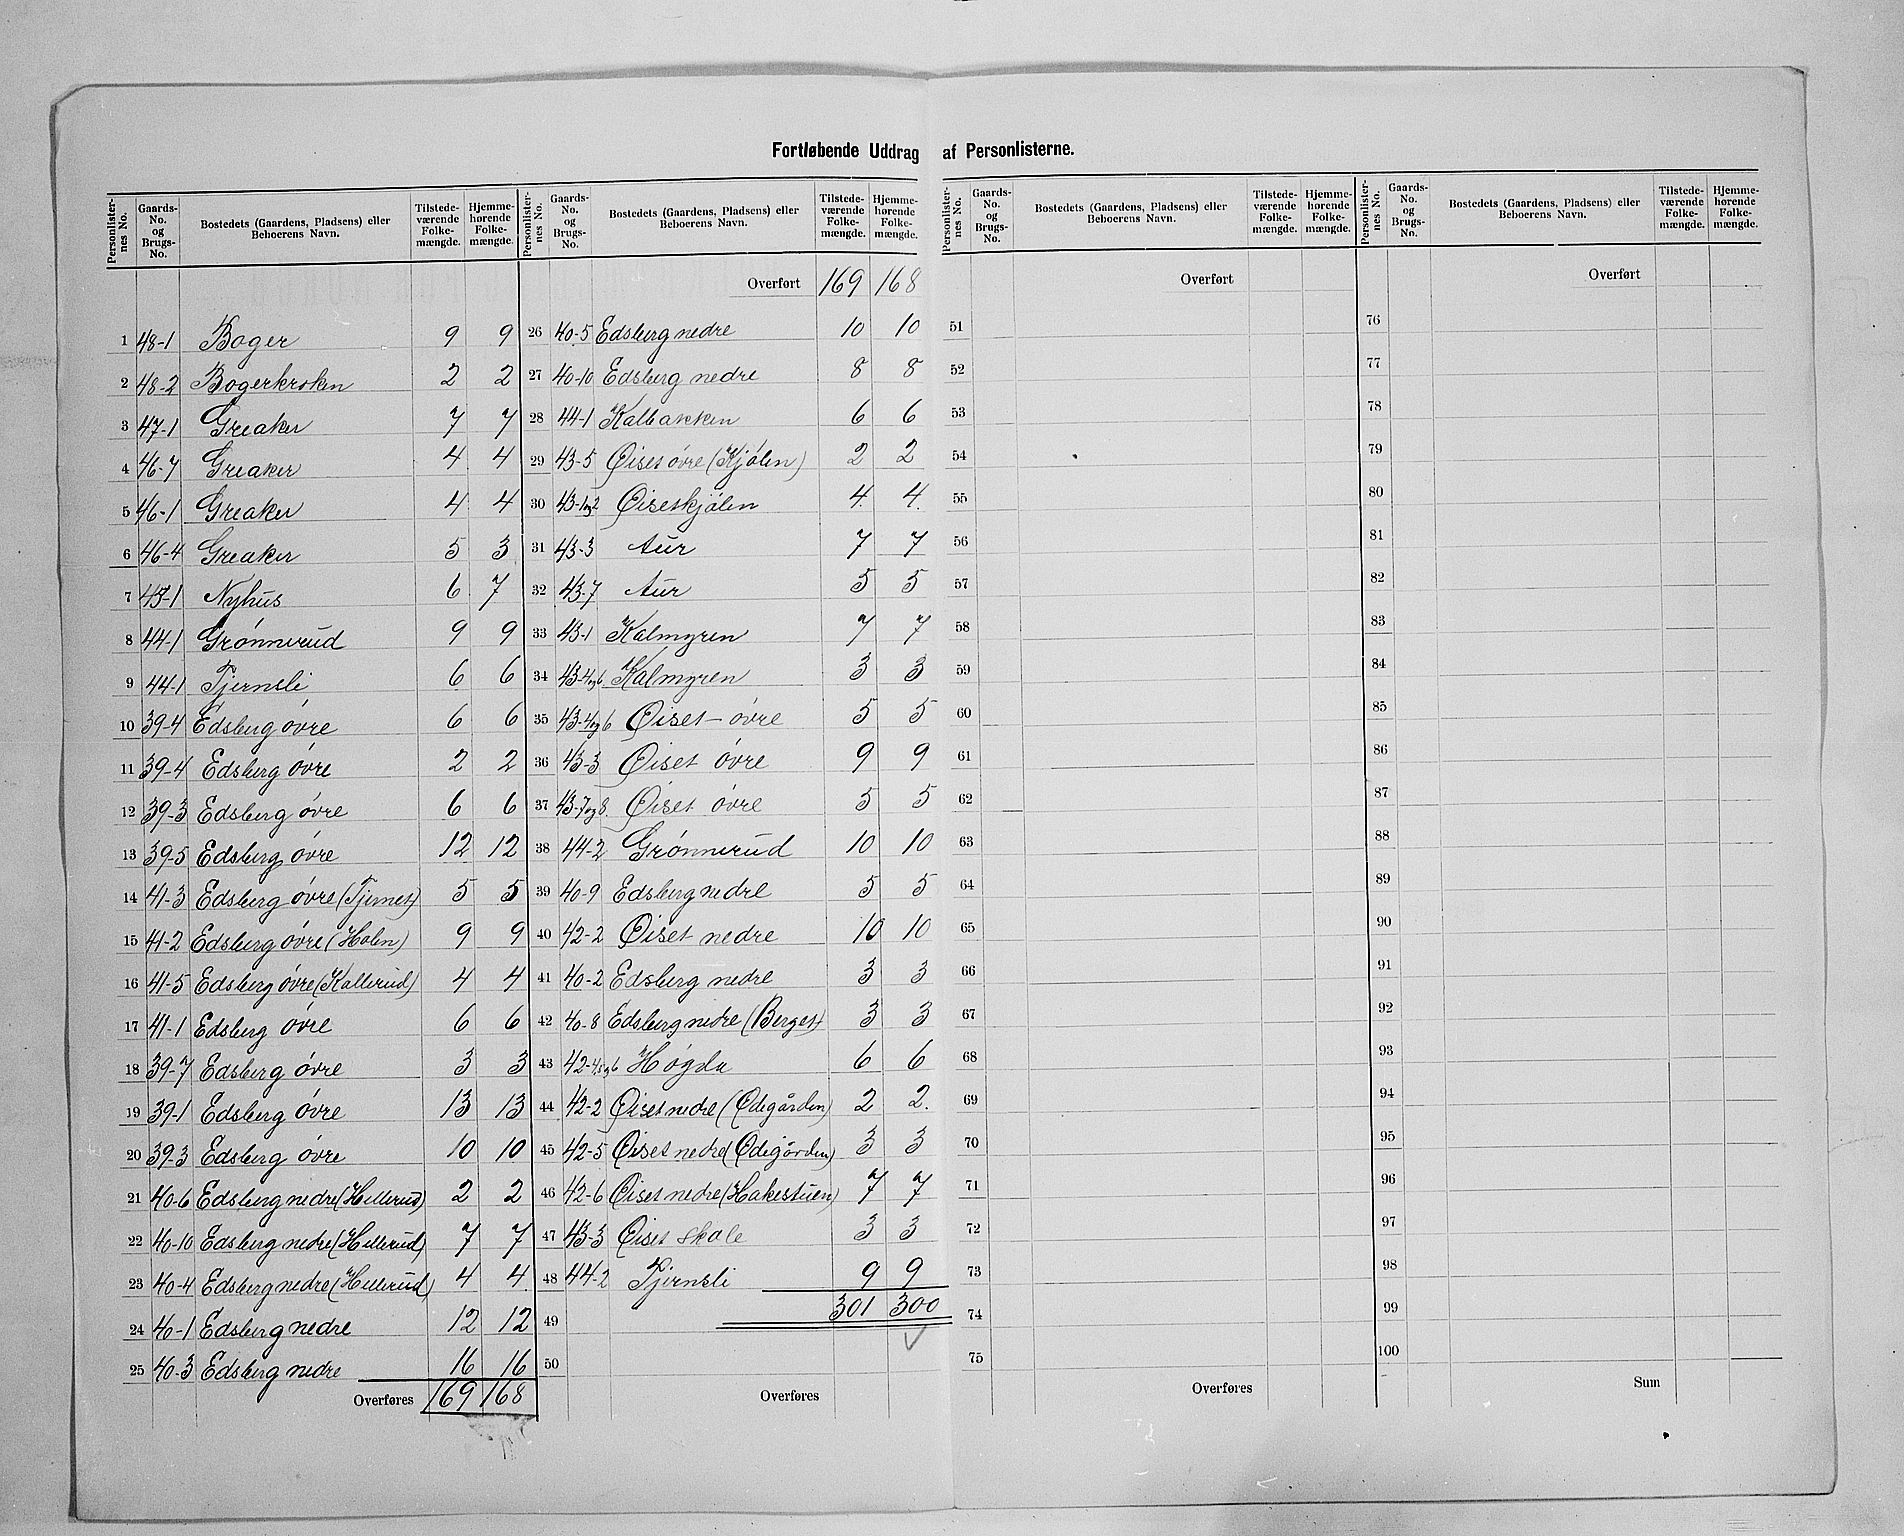 Fortløbende Uddrag af Personlisterne.
Personlister-nes No. | Gaards-No. og Brugs-No. | Bostedets (Gaardens, Pladsens) eller Beboerens Navn. | Tilstede-værende Folke-mængde. | Hjemme-hørende Folke-mængde.
1 48-1 Boger 9 9
2 48-2 Bogerkroken 2 2
3 47-1 Greaker 7 7
4 46-7 Greaker 4 4
5 46-1 Greaker 4 4
6 46-4 Greaker 5 3
7 45-1 Nyhus 6 7
8 44-1 Grønnerud 9 9
9 44-1 Tjernsli 6 6
10 39-4 Edsberg óvre 6 6
11 39-4 Edsberg óvre 2 2
12 39-3 Edsberg óvre 6 6
13 39-5 Edsberg óvre 12 12
14 41-3 Edsberg óvre (Tjernet) 5 5
15 41-2 Edsberg óvre (Holen) 9 9
16 41-5 Edsberg óvre (Kallerud) 4 4
17 41-1 Edsberg óvre 6 6
18 39-7 Edsberg óvre 3 3
19 39-1 Edsberg óvre 13 13
20 39-3 Edsberg óvre 10 10
21 40-6 Edsberg nedre (Hellerud) 2 2
22 40-10 Edsberg nedre (Hellerud) 7 7
23 40-4 Edsberg nedre (Hellerud) 4 4
24 40-1 Edsberg nedre 12 12
25 40-3 Edsberg nedre 16 16
Overføres 169 168
Personlister-nes No. | Gaards-No. og Brugs-No. | Bostedets (Gaardens, Pladsens) eller Beboerens Navn. | Tilstede-værende Folke-mængde. | Hjemme-hørende Folke-mængde.
Overført 169 168
26 40-5 Edsberg nedre 10 10
27 40-10 Edsberg nedre 8 8
28 44-1 Kalbakken 6 6
29 43-5 Øiset óvre (Kjólen) 2 2
30 43-1og2 Øisetkjólen 4 4.
31 43-3 Aur 7 7
32 43-7 Aur 5 5
33 43-1 Kalmyren 7 7
34 43-4og6 Kalmyren 3 3
35 43-4og6 Øiset-óvre 5 5
36 43-3 Øiset óvre 9 9
37 43-7og8. Øiset óvre 5 5
38 44-2 Grønnerud 10 10
39 40-9 Edsberg nedre 5 5
40 42-2 Øiset nedre 10 10
41 40-2 Edsberg nedre 3 3
42 40-8 Edsberg nedre (Berget) 3 3
43 42-4og6 Høgda 6 6
44 42-2 Øiset nedre (Ødegården) 2 2.
45 42-5 Øiset nedre (Ødegården) 3 3
46 42-6 Øiset nedre (Hakestuen) 7 7
47 43-3 Øiset skole 3 3
48 44-2 Tjernsli 9 9
49 301 300
50
Overføres
Personlister-nes No. | Gaards-No. og Brugs-No. | Bostedets (Gaardens, Pladsens) eller Beboerens Navn. | Tilstede-værende Folke-mængde. | Hjemme-hørende Folke-mængde.
Overført
51
52
53
54
55
56
57
58
59
60
61
62
63
64
65
66
67
68
69
70
71
72
73
74
75
Overføres
Personlister-nes No. | Gaards-No. og Brugs-No. | Bostedets (Gaardens, Pladsens) eller Beboerens Navn. | Tilstede-værende Folke-mængde. | Hjemme-hørende Folke-mængde.
Overført
76
77
78
79
80
81
82
83
84
85
86
87
88
89
90
91
92
93
94
95
96
97
98
99
100
Sum